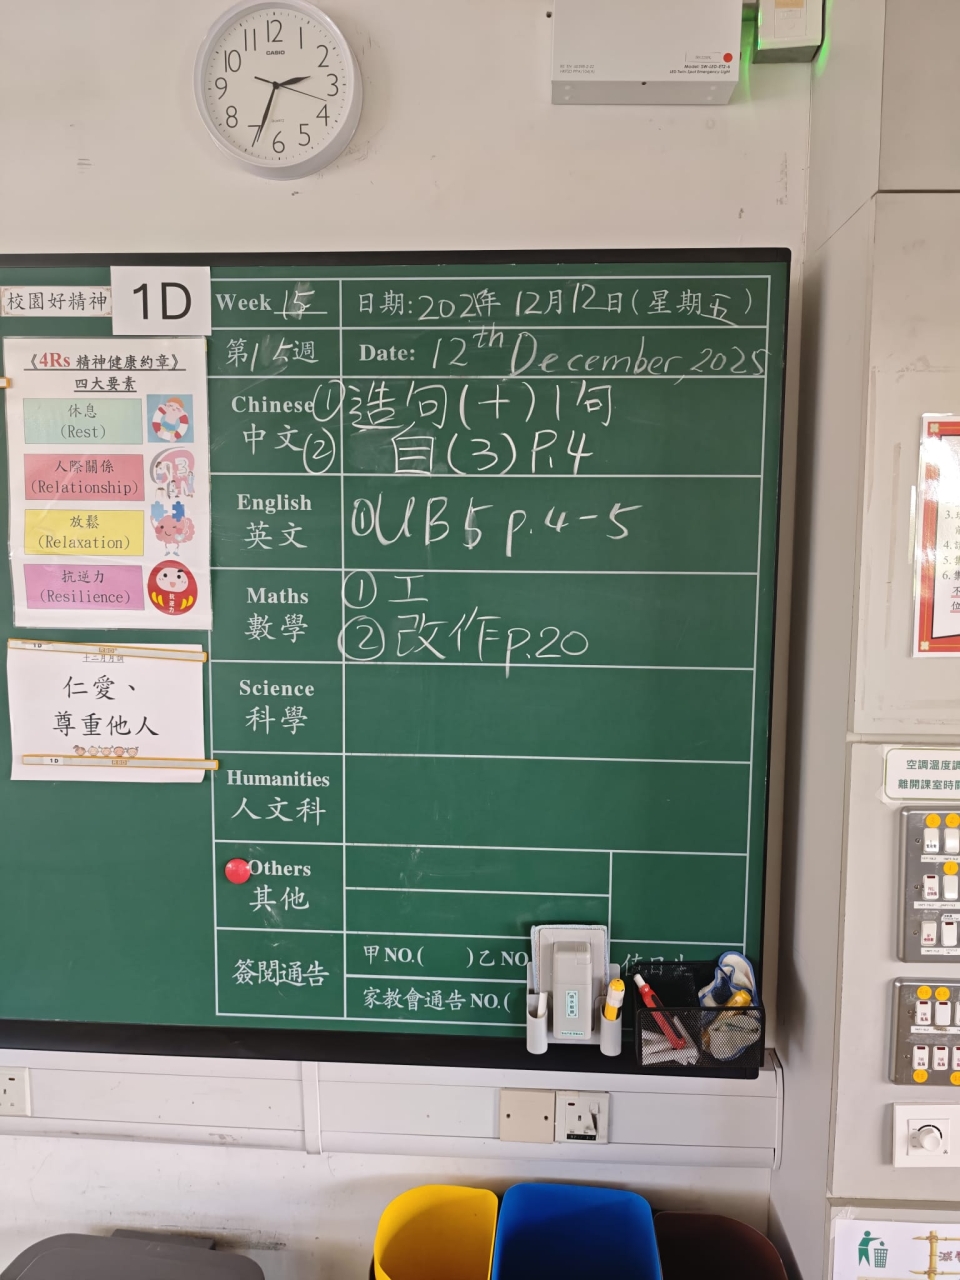 12 1 2 3 4 5 6 7 8 9 10 11
CASIO
校園好精神
1D
Week 15
日期: 2025年 12月12日(星期五)
第15週
Date: 12th December, 2025
《4Rs 精神健康約章》
四大要素
休息
(Rest)
人際關係
(Relationship)
放鬆
(Relaxation)
抗逆力
(Resilience)
抗逆力
Chinese
中文
①造句(十)1句
②目(3) P.4
English
英文
①UB5 p.4-5
Maths
數學
①工
②改作p.20
Science
科學
Humanities
人文科
Others
其他
簽閱通告
甲NO.( )乙NO
值日生
家教會通告NO.(
1D
十二月月訓
仁愛、
尊重他人
1D
3.
4.
5.
6.
空調溫度調
離開課室時關